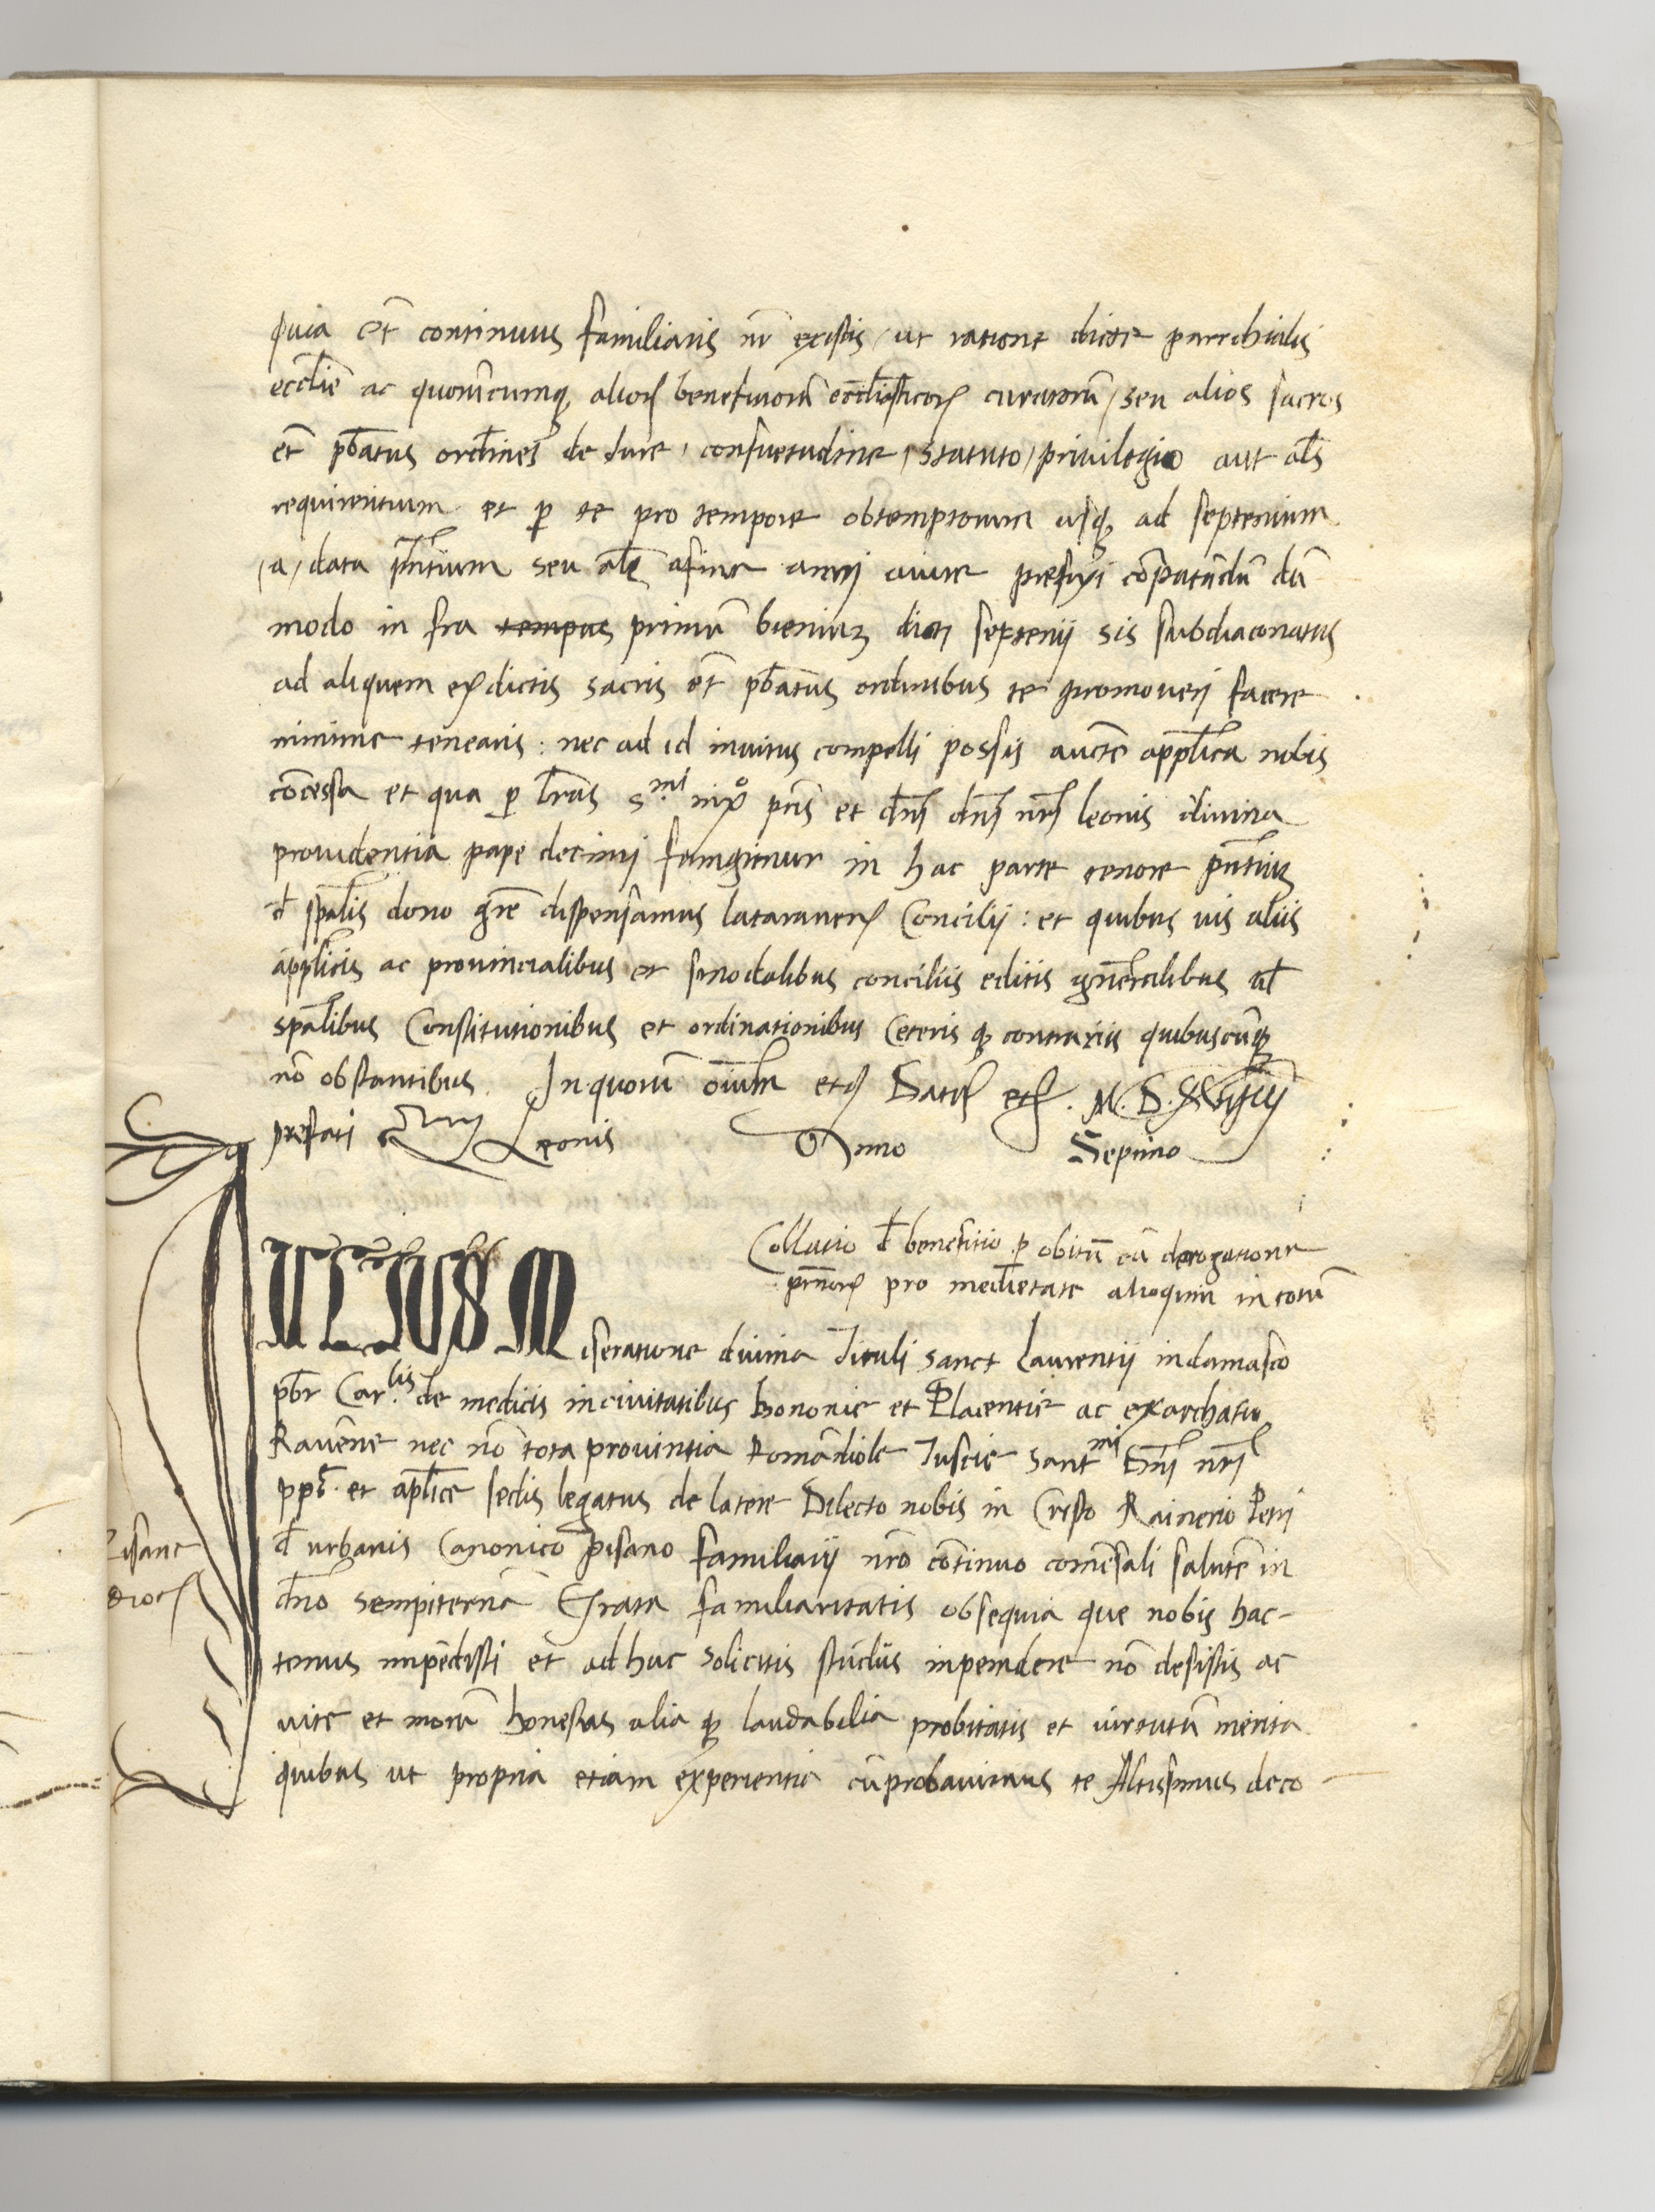 quia et̄ continuus familiaris nr̄ existis / ut ratione dicte parrchialis
eccl̄ie ac quorūcumq; alior̄ beneficiorū eccl̄iasticor̄ curatorū / seu alios sacros
et̄ pb̄atus ord̄ines de Jure / consuetudine / Statuto / privilegio aut al̄s
requirentium et p̄ te pro tempore obtemptorum usq; ad septenium
/ a / data pn̄tium seu al̄s afine anni aiure prefixi cōputandū dū
modo in fra tempus primū bieniuz dicti septenii sis subdiaconatus
ad aliquem ex dictis sacris et̄ pb̄atus ordinibus te promoverj facere
minime tenearis : nec ad id invitus compelli possis aucte appl̄ica nobis
cōcessa et qua p̄ l̄ras S.mi in xo p̄ris et dn̄j dn̄j nr̄j leonis divina
providentia pape decimj fungimur in hac parte tenore pn̄tiuz
d̄ spāl̄is dono gr̄e dispensamus lataranen̄ Concilij : et quibus vis aliis
appl̄icis ac provincialibus et sinodalibus conciliis editis gn̄eralibus ul̄
spāl̄ibus Constitutionibus et ordinationibus Ceteris q; contrariis quibuscūq;
nō obstantibus In quorum oīum etc̄ Dat̄ etc̄. M.D.
prefati Leonis Anno Septimo
Collatio d̄ benefitio p̄ obitū cū derogatione
pro medietate alioquin in totū
IULIUS M
iseratione divina Tituli Sanct Laurentij indamasco
pb̄r Car.lis de medicis incivitatibus bononie et Placentie ac exarchatu
Ravēne nec nō tota provintia Romādiole Tuscie Sant mi Dn̄j nr̄j
pp̄. et ap̄l̄ice sedis legatus de latere Dilecto nobis in Cr̄isto Rainerio Petri
d̄ urbanis Canonico pisano familiarij nr̄o cōtinuo comēsali salutē in
dn̄o sempiternā Grata familiaritatis obsequia que nobis hac-
tenus impēdisti et adhuc solicitis studiis inpendere nō desistis ac
vite et morū honestas alia q; laudabilia probitatis et virtutū merita
quibus ut propria etiam experientia cūprobavimus te Altissimus deco-
Pisane
dioc̄